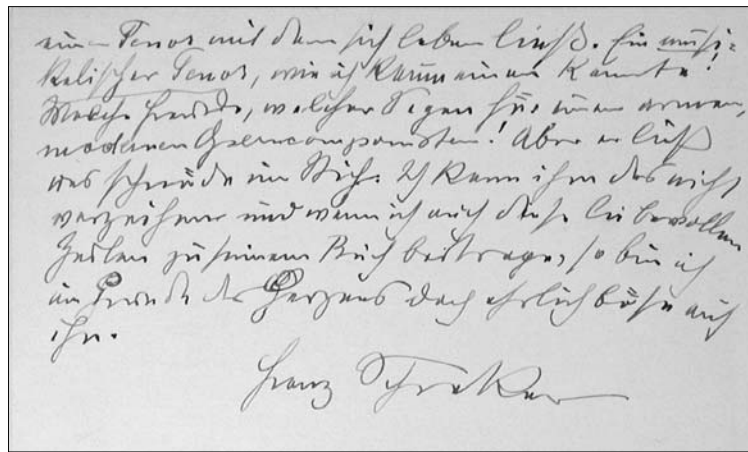 einen Tenor mit dem sich leben ließ. Ein musi-
kalischer Tenor, wie ich kaum einen kannte!
Welche Freude, welcher Segen für einen armen,
modernen Operncomponisten! Aber er ließ
uns schnöde im Stich. Ich kann ihm das nicht
verzeihen und wenn ich auch diese liebevollen
Zeilen zu seinem Buch beitrage, so bin ich
im Grunde des Herzens doch ehrlich böse auf
ihn.
Franz Schreker